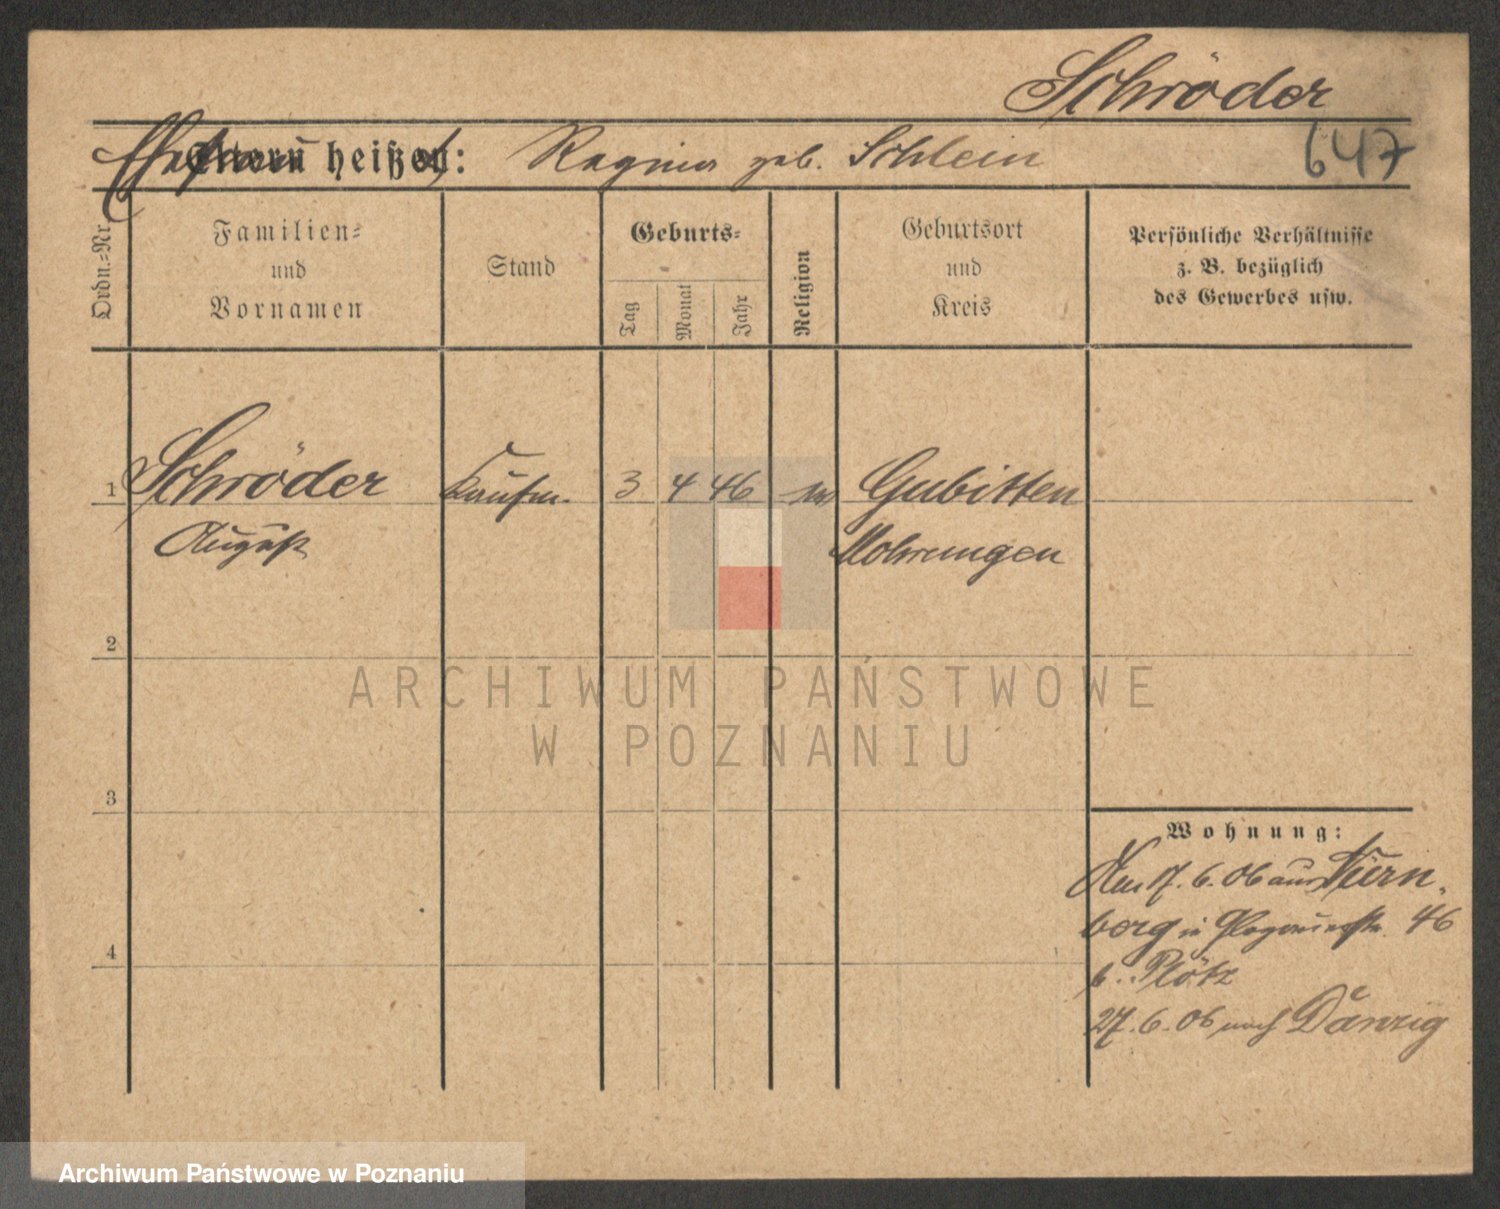 Schröder
Ehefrau heißt: Regina geb. Schlein
647
Ordn.=Nr.
Familien=
und
Vornamen
Stand
Geburts=
Tag
Monat
Jahr
Religion
Geburtsort
und
Kreis
Persönliche Verhältnisse
z. B. bezüglich
des Gewerbes usw.
1 Schröder Kaufm. 3 4 46 Gubitten
August Mohrungen
2
ARCHIWUM PAŃSTWOWE
W POZNANIU
3
Wohnung:
17. 6. 06 aus Nürn-
berg in 46
b. Plötz
4
27. 6. 06 nach Danzig
Archiwum Państwowe w Poznaniu